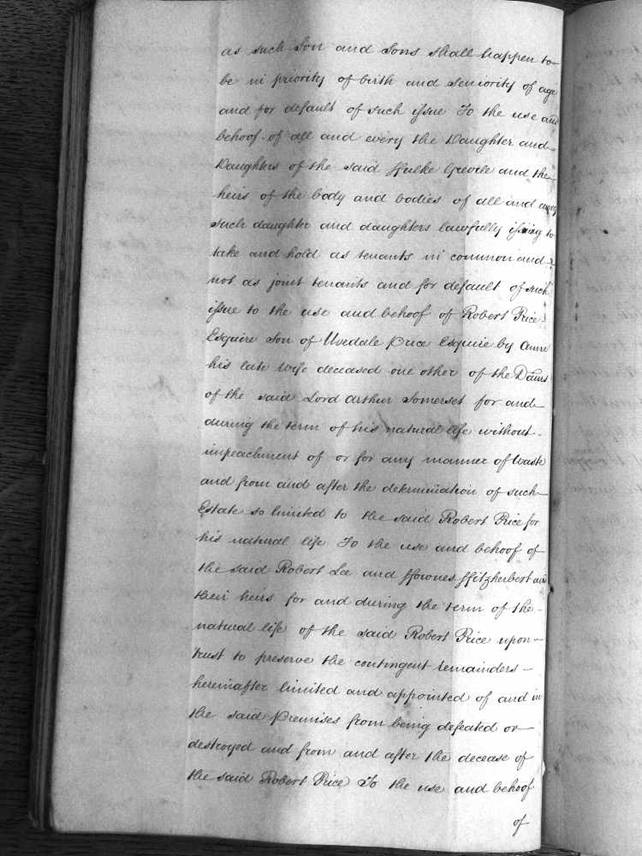 as such Son and Sons shall happen to
be in priority of birth and seniority of age
and for default of such issue To the use and
behoof of all and every the Daughter and
Daughters of the said ffulke Greville and the
heirs of the body and bodies of all and every
such daughter and daughters lawfully issuing to
take and hold as tenants in common and
not as joint tenants and for default of such
issue to the use and behoof of Robert Price
Esquire son of Uvedale Price Esquire by Anne
his late wife deceased one other of the Daurs
of the said Lord Arthur Somerset for and
during the term of his natural life without
impeachment of or for any manner of Waste
and from and after the determination of such
Estate so limited to the said Robert Price for
his natural life To the use and behoof of
the said Robert Lee and ffownes ffitzherbert and
their heirs for and during the term of the
natural life of the said Robert Price upon
trust to preserve the contingent remainders
hereinafter limited and appointed of and in
the said Premises from being defeated or
destroyed and from and after the decease of
the said Robert Price To the use and behoof
of